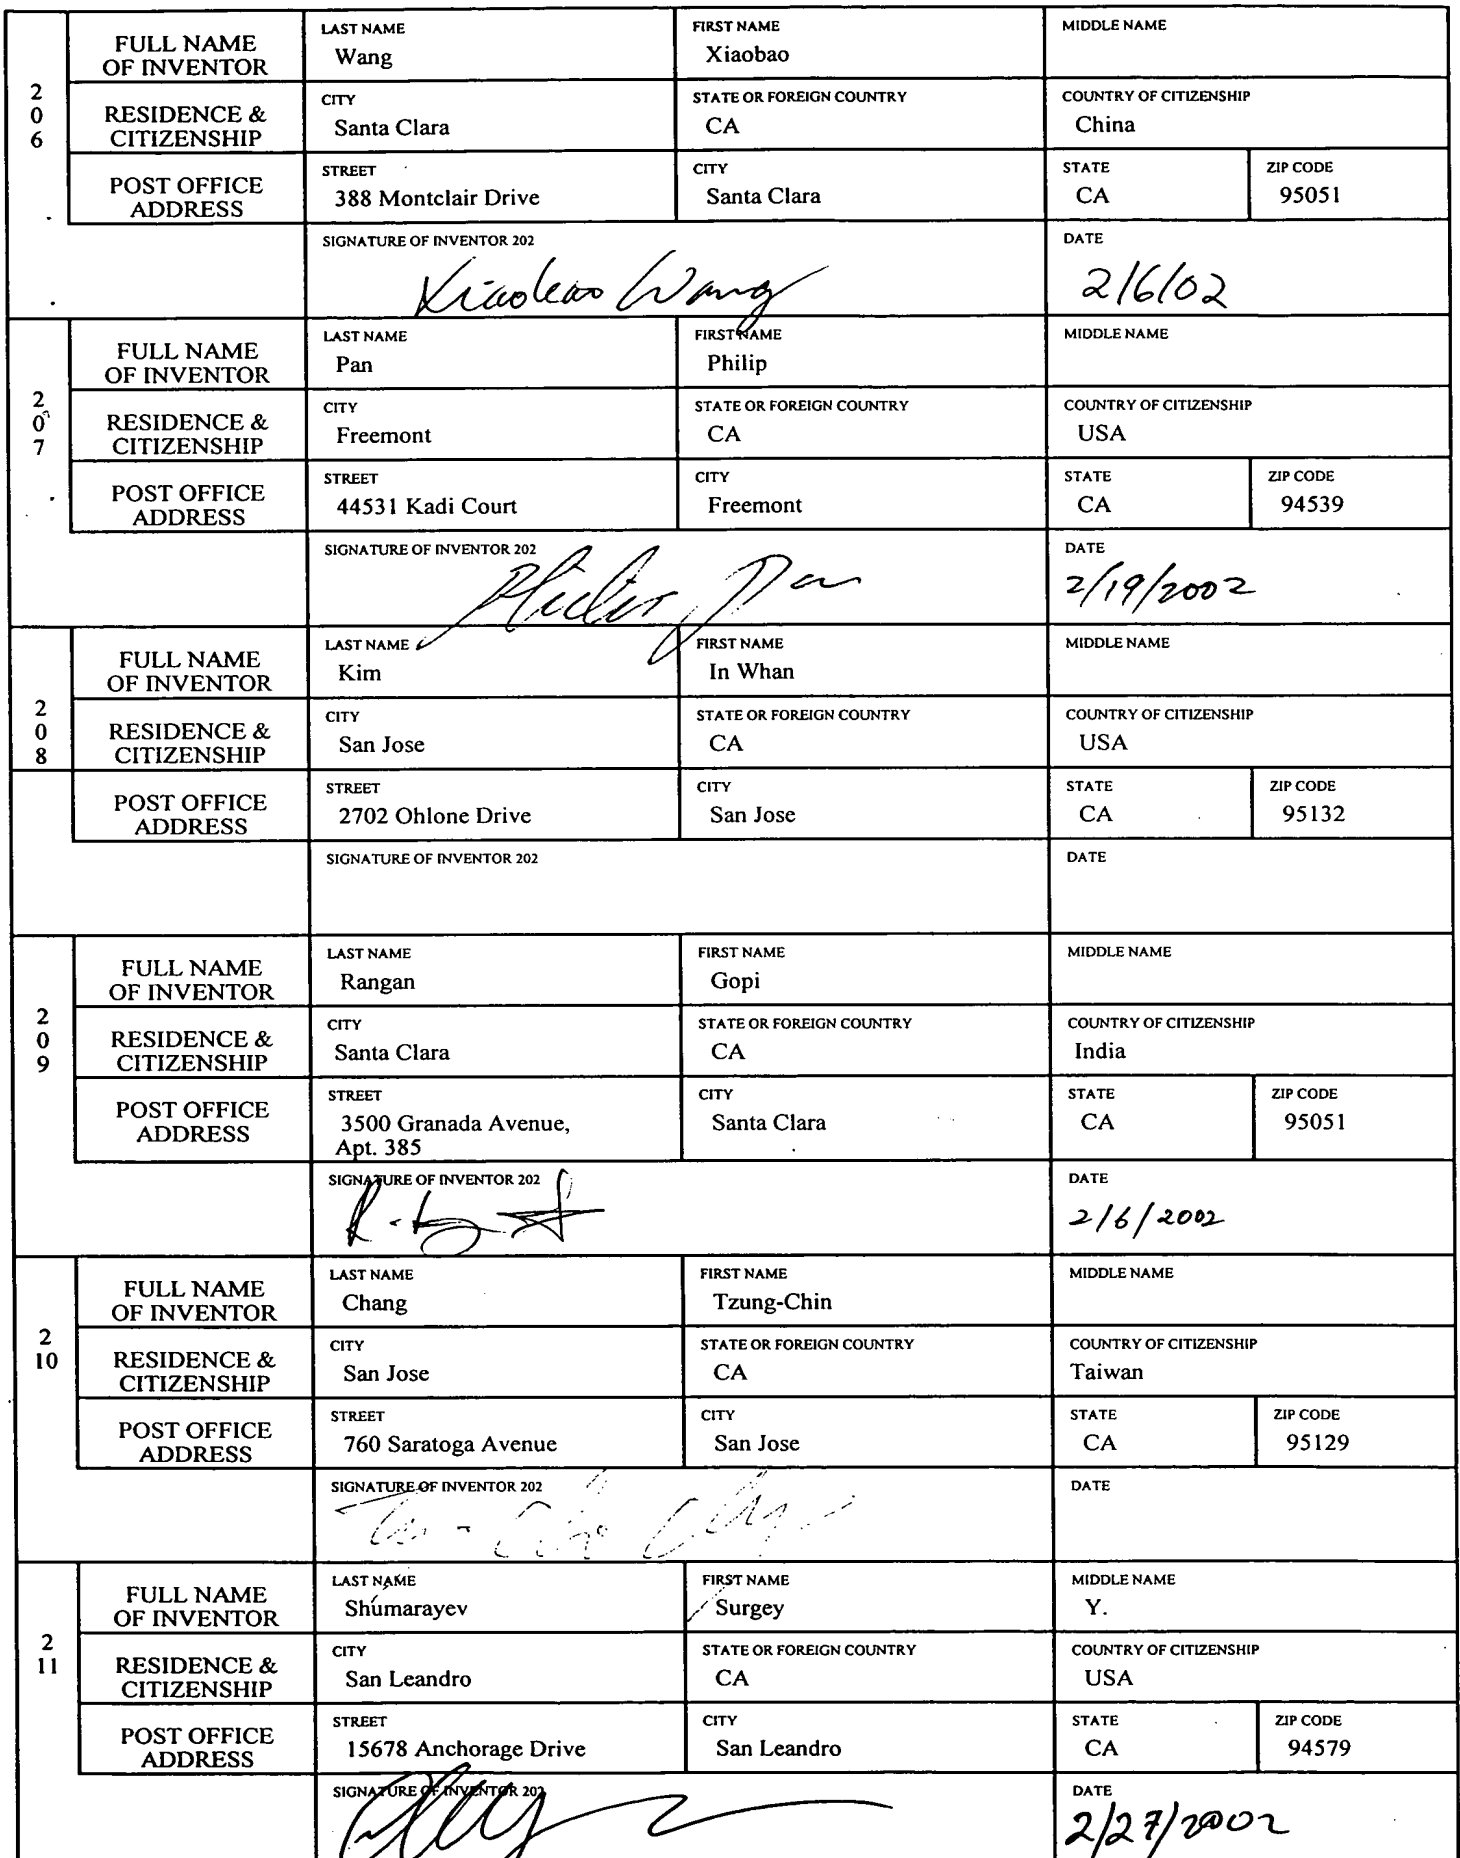 206
FULL NAME OF INVENTOR
LAST NAME Wang
FIRST NAME Xiaobao
MIDDLE NAME
RESIDENCE & CITIZENSHIP
CITY Santa Clara
STATE OR FOREIGN COUNTRY CA
COUNTRY OF CITIZENSHIP China
POST OFFICE ADDRESS
STREET 388 Montclair Drive
CITY Santa Clara
STATE CA
ZIP CODE 95051
SIGNATURE OF INVENTOR 202 Xiaobao Wang
DATE 2/6/02
207
FULL NAME OF INVENTOR
LAST NAME Pan
FIRST NAME Philip
MIDDLE NAME
RESIDENCE & CITIZENSHIP
CITY Freemont
STATE OR FOREIGN COUNTRY CA
COUNTRY OF CITIZENSHIP USA
POST OFFICE ADDRESS
STREET 44531 Kadi Court
CITY Freemont
STATE CA
ZIP CODE 94539
SIGNATURE OF INVENTOR 202 Philip Pan
DATE 2/19/2002
208
FULL NAME OF INVENTOR
LAST NAME Kim
FIRST NAME In Whan
MIDDLE NAME
RESIDENCE & CITIZENSHIP
CITY San Jose
STATE OR FOREIGN COUNTRY CA
COUNTRY OF CITIZENSHIP USA
POST OFFICE ADDRESS
STREET 2702 Ohlone Drive
CITY San Jose
STATE CA
ZIP CODE 95132
SIGNATURE OF INVENTOR 202
DATE
209
FULL NAME OF INVENTOR
LAST NAME Rangan
FIRST NAME Gopi
MIDDLE NAME
RESIDENCE & CITIZENSHIP
CITY Santa Clara
STATE OR FOREIGN COUNTRY CA
COUNTRY OF CITIZENSHIP India
POST OFFICE ADDRESS
STREET 3500 Granada Avenue, Apt. 385
CITY Santa Clara
STATE CA
ZIP CODE 95051
SIGNATURE OF INVENTOR 202
DATE 2/6/2002
210
FULL NAME OF INVENTOR
LAST NAME Chang
FIRST NAME Tzung-Chin
MIDDLE NAME
RESIDENCE & CITIZENSHIP
CITY San Jose
STATE OR FOREIGN COUNTRY CA
COUNTRY OF CITIZENSHIP Taiwan
POST OFFICE ADDRESS
STREET 760 Saratoga Avenue
CITY San Jose
STATE CA
ZIP CODE 95129
SIGNATURE OF INVENTOR 202
DATE
211
FULL NAME OF INVENTOR
LAST NAME Shumarayev
FIRST NAME Surgey
MIDDLE NAME Y.
RESIDENCE & CITIZENSHIP
CITY San Leandro
STATE OR FOREIGN COUNTRY CA
COUNTRY OF CITIZENSHIP USA
POST OFFICE ADDRESS
STREET 15678 Anchorage Drive
CITY San Leandro
STATE CA
ZIP CODE 94579
SIGNATURE OF INVENTOR 202
DATE 2/27/2002